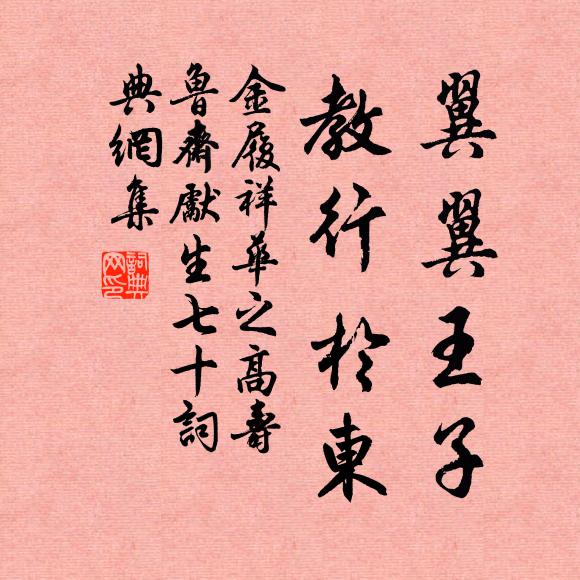 翼翼王子
教行於東
金履祥華之高壽
魯齋獻生七十詞
典網集
詞典網印